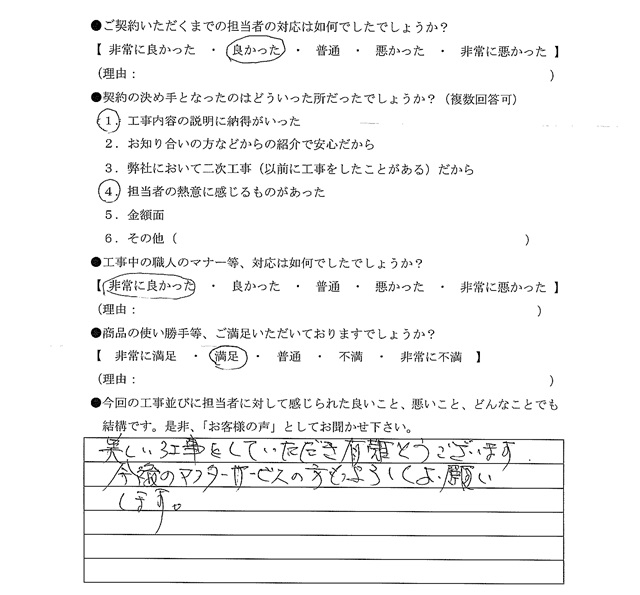 ●ご契約いただくまでの担当者の対応は如何でしたでしょうか？
【 非常に良かった ・ 良かった ・ 普通 ・ 悪かった ・ 非常に悪かった 】
（理由： ）
●契約の決め手となったのはどういった所だったでしょうか？（複数回答可）
１．工事内容の説明に納得がいった
２．お知り合いの方などからの紹介で安心だから
３．弊社において二次工事（以前に工事をしたことがある）だから
４．担当者の熱意に感じるものがあった
５．金額面
６．その他（ ）
●工事中の職人のマナー等、対応は如何でしたでしょうか？
【 非常に良かった ・ 良かった ・ 普通 ・ 悪かった ・ 非常に悪かった 】
（理由： ）
●商品の使い勝手等、ご満足いただいておりますでしょうか？
【 非常に満足 ・ 満足 ・ 普通 ・ 不満 ・ 非常に不満 】
（理由： ）
●今回の工事並びに担当者に対して感じられた良いこと、悪いこと、どんなことでも
結構です。是非、「お客様の声」としてお聞かせ下さい。
美しい工事をしていただき有難とうございます
今後のアフターサービスの方もよろしくお願い
します。